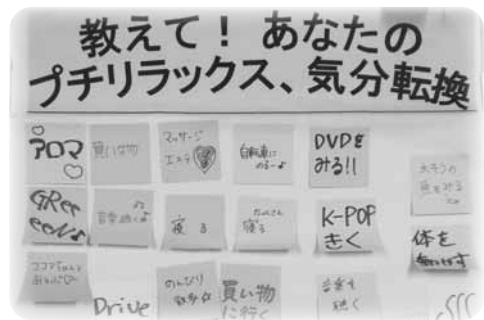 教えて！ あなたの
プチリラックス、気分転換
アロマ
買い物
マッサージ
エステ
自転車に
のる～♪
DVDを
みる!!
水そうの
魚をみる
GReeeeN♪
音楽聴く♪
寝る
たくさん
寝る
K-POP
きく
体を
動かす
Drive
のんびり
散歩☆
買い物
に行く
音楽を
聴く